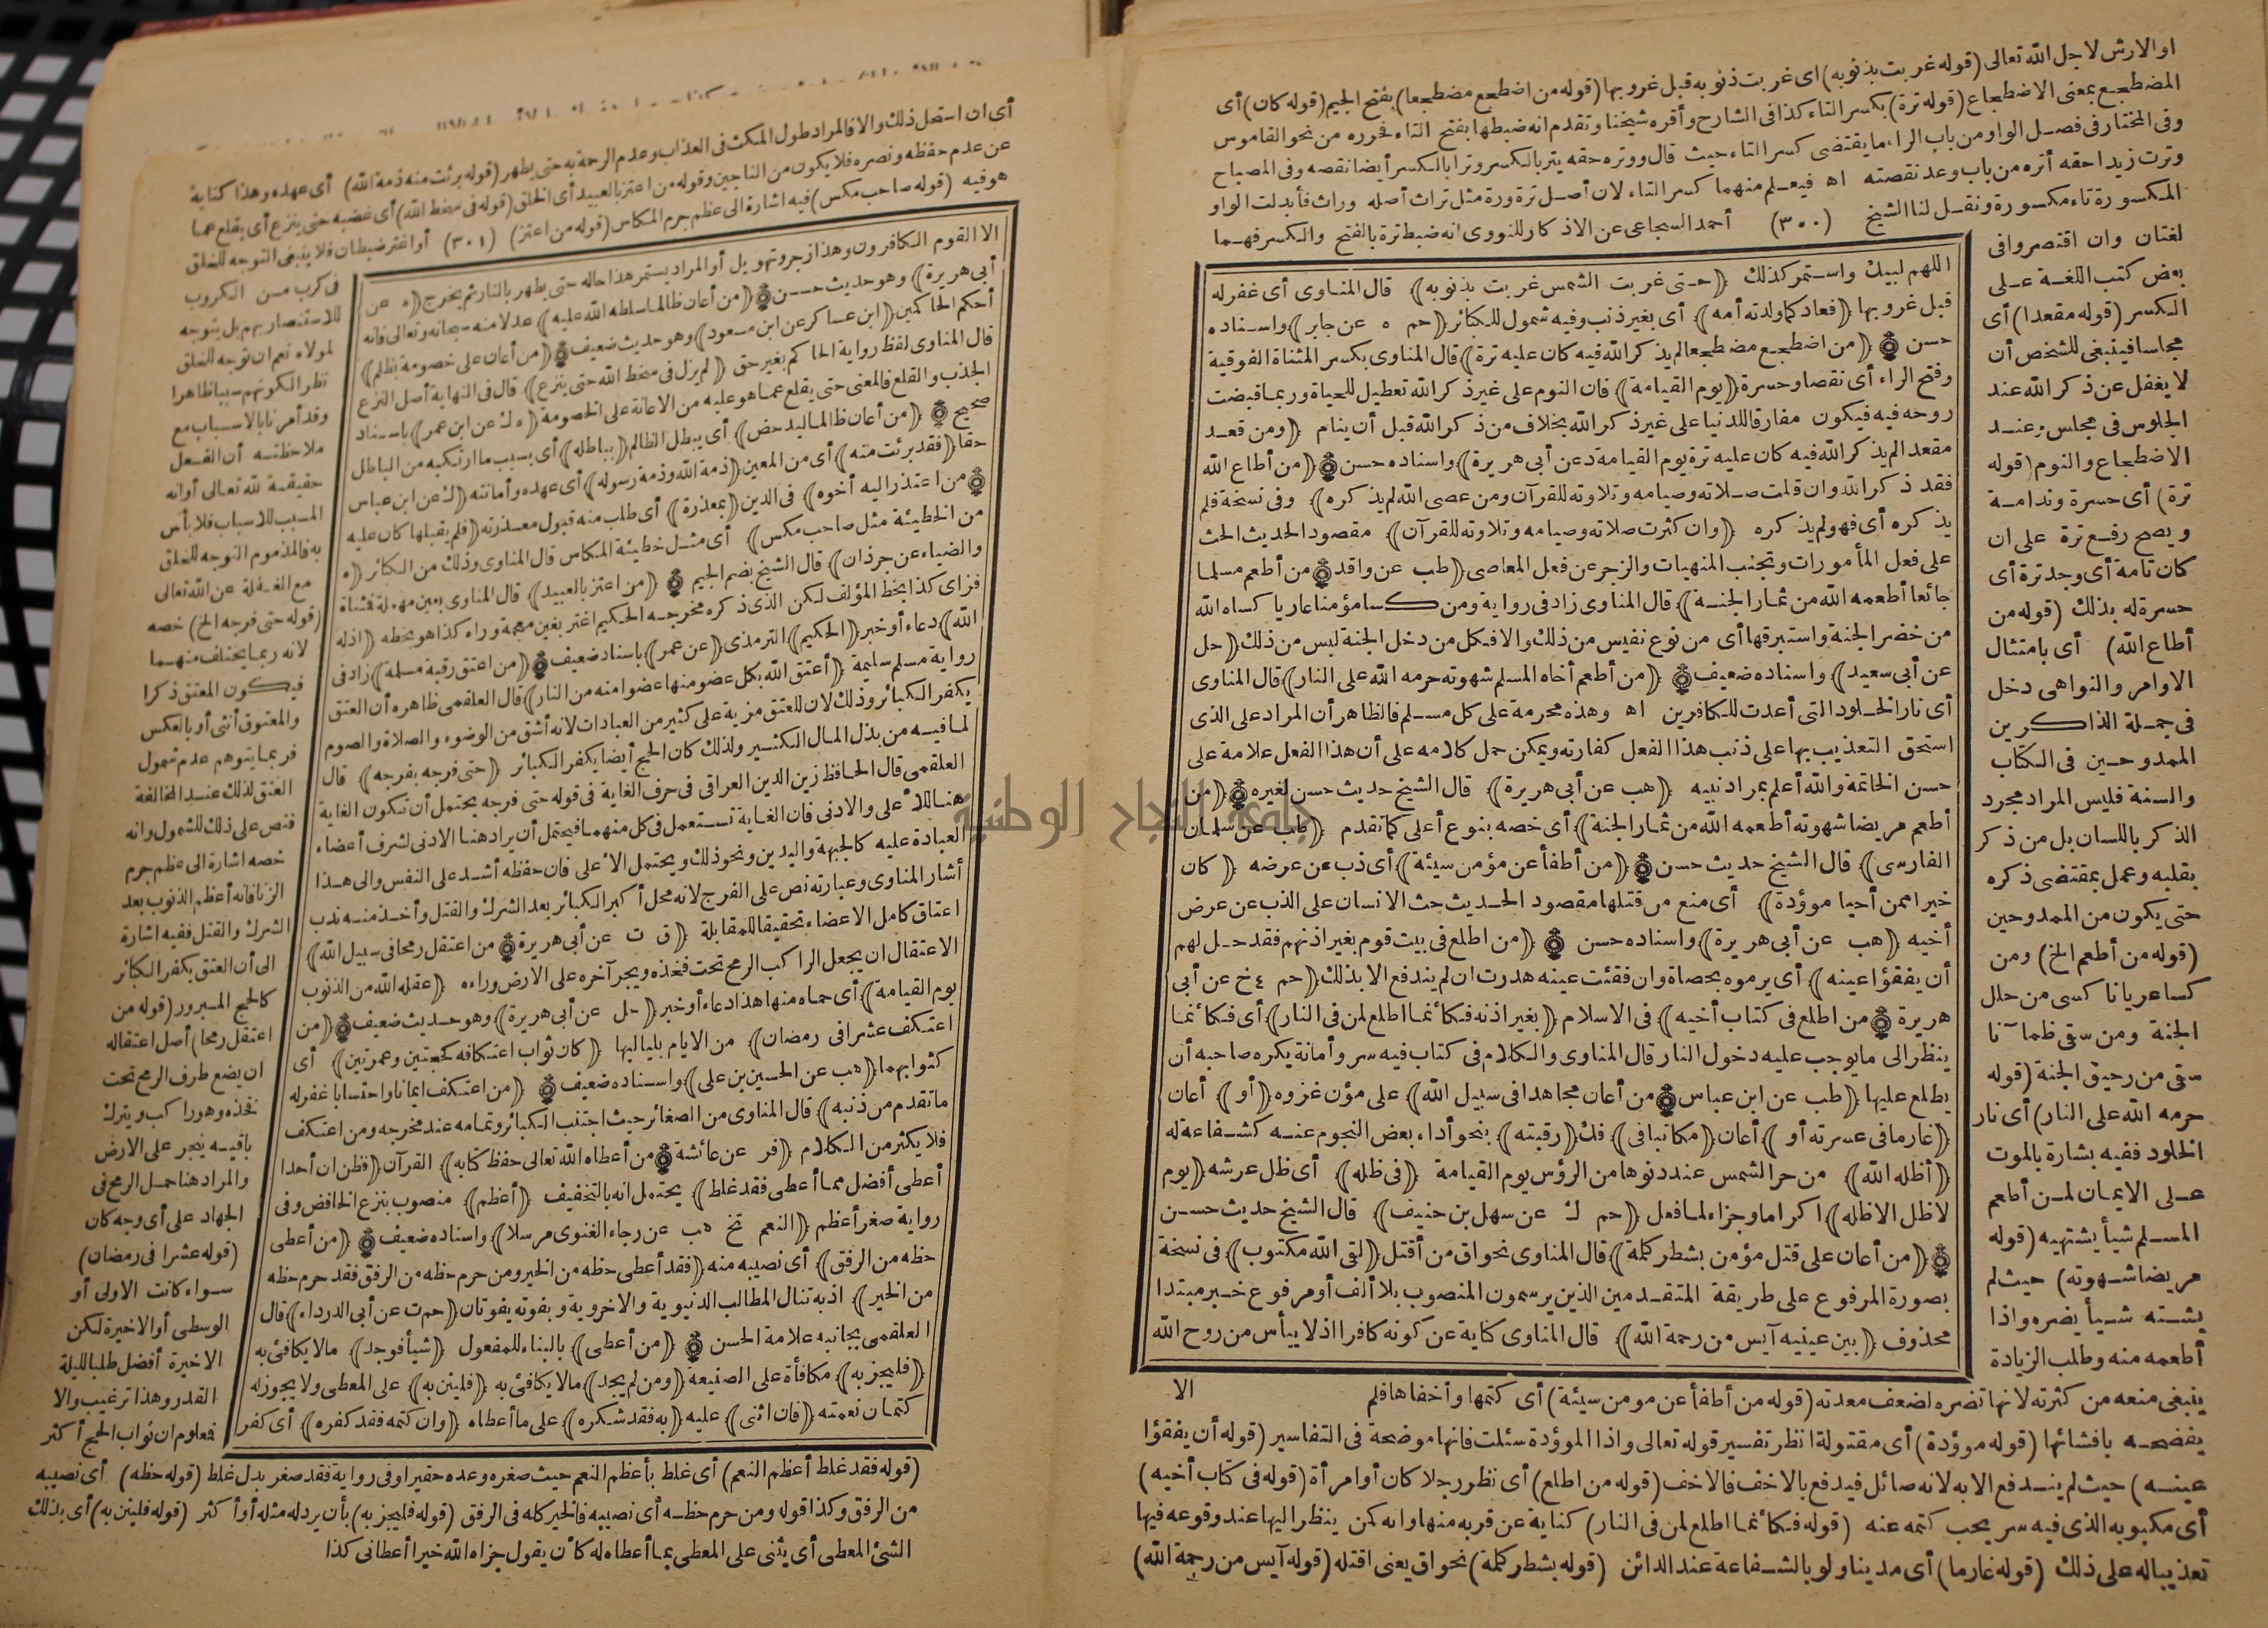 او الارش لاجل الله تعالى (قوله غربت بذنوبه) اى غربت ذنوبه قبل غروبها (قوله من اضطجع مضطجعا) بفتح الجيم (قوله كان) أى
المضطجع بمعنى الاضطجاع (قوله ترة) بكسر التاء كذا فى الشارح وأقره شيخنا وتقدم انه ضبطها بفتح التاء فحرره من نحو القاموس
وفى المختار فى فصل الواو من باب الراء ما يقتضى كسر التاء حيث قال ووتره حقه يتر بالكسر وترا بالكسر أيضا نقصه وفى المصباح
وترت زيدا حقه أتره من باب وعد نقصته اه فيعلم منهما كسر التاء لان أصل ترة ورة مثل تراث أصله وراث فأبدلت الواو
المكسورة تاء مكسورة ونقل لنا الشيخ (٣٠٠) أحمد السجاعى عن الاذكار للنووى انه ضبط ترة بالفتح والكسر فهما
لغتان وان اقتصروا فى
بعض كتب اللغة على
الكسر (قوله مقعدا) أى
مجلسا فينبغى للشخص أن
لا يغفل عن ذكر الله عند
الجلوس فى مجلس وعند
الاضطجاع والنوم (قوله
ترة) أى حسرة وندامة
ويصح رفع ترة على ان
كان تامة أى وجد ترة أى
حسرة له بذلك (قوله من
أطاع الله) أى بامتثال
الاوامر والنواهى دخل
فى جملة الذاكرين
الممدوحين فى الكتاب
والسنة فليس المراد مجرد
الذكر باللسان بل من ذكر
بقلبه وعمل بمقتضى ذكره
حتى يكون من الممدوحين
(قوله من أطعم الخ) ومن
كسا عريانا كسى من حلل
الجنة ومن سقى ظمآنا
سقى من رحيق الجنة (قوله
حرمه الله على النار) أى نار
الخلود ففيه بشارة بالموت
على الايمان لمن أطعم
المسلم شيأ يشتهيه (قوله
مريضا شهوته) حيث لم
يشته شيأ يضره واذا
أطعمه منه وطلب الزيادة
اللهم لبيك واستمر كذلك (حتى غربت الشمس غربت بذنوبه) قال المناوى أى غفر له
قبل غروبها (فعاد كما ولدته أمه) أى بغير ذنب وفيه شمول للكبائر (حم ه عن جابر) واسناده
حسن (من اضطجع مضطجعا لم يذكر الله فيه كان عليه ترة) قال المناوى بكسر المثناة الفوقية
وفتح الراء أى نقصا وحسرة (يوم القيامة) فان النوم على غير ذكر الله تعطيل للحياة وربما قبضت
روحه فيه فيكون مفارقا للدنيا على غير ذكر الله بخلاف من ذكر الله قبل أن ينام (ومن قعد
مقعدا لم يذكر الله فيه كان عليه ترة يوم القيامة د عن أبى هريرة) واسناده حسن (من أطاع الله
فقد ذكر الله وان قلت صلاته وصيامه وتلاوته للقرآن ومن عصى الله لم يذكره) وفى نسخة فلم
يذكره أى فهو لم يذكره (وان كثرت صلاته وصيامه وتلاوته للقرآن) مقصود الحديث الحث
على فعل المأمورات وتجنب المنهيات والزجر عن فعل المعاصى (طب عن واقد من أطعم مسلما
جائعا أطعمه الله من ثمار الجنة) قال المناوى زاد فى رواية ومن كسا مؤمنا عاريا كساه الله
من خضر الجنة واستبرقها أى من نوع نفيس من ذلك والا فكل من دخل الجنة لبس من ذلك (حل
عن أبى سعيد) واسناده ضعيف (من أطعم أخاه المسلم شهوته حرمه الله على النار) قال المناوى
أى نار الخلود التى أعدت للكافرين اه وهذه محرمة على كل مسلم فالظاهر أن المراد على الذى
استحق التعذيب بها على ذنب هذا الفعل كفارته ويمكن حمل كلامه على أن هذا الفعل علامة على
حسن الخاتمة والله أعلم بمراد نبيه (هب عن أبى هريرة) قال الشيخ حديث حسن لغيره (من
أطعم مريضا شهوته أطعمه الله من ثمار الجنة) أى خصه بنوع أعلى كما تقدم (طب عن سلمان
الفارسى) قال الشيخ حديث حسن (من أطفأ عن مؤمن سيئة) أى ذب عن عرضه (كان
خيرا ممن أحيا موؤدة) أى منع من قتلها مقصود الحديث حث الانسان على الذب عن عرض
أخيه (هب عن أبى هريرة) واسناده حسن (من اطلع فى بيت قوم بغير اذنهم فقد حل لهم
أن يفقؤا عينه) أى يرموه بحصاة وان فقئت عينه هدرت ان لم يندفع الا بذلك (حم ٤ خ عن أبى
هريرة من اطلع فى كتاب أخيه) فى الاسلام (بغير اذنه فكأنما اطلع لمن فى النار) أى فكأنما
ينظر الى ما يوجب عليه دخول النار قال المناوى والكلام فى كتاب فيه سر وأمانة يكره صاحبه أن
يطلع عليها (طب عن ابن عباس من أعان مجاهدا فى سبيل الله) على مؤن غزوه (أو) أعان
(غارما فى عسرته أو) أعان (مكاتبا فى) فك (رقبته) بنحو أداء بعض النجوم عنه كشفاعة له
(أظله الله) من حر الشمس عند دنوها من الرؤس يوم القيامة (فى ظله) أى ظل عرشه (يوم
لا ظل الا ظله) اكراما وجزاء لما فعل (حم ك عن سهل بن حنيف) قال الشيخ حديث حسن
(من أعان على قتل مؤمن بشطر كلمة) قال المناوى نحو اق من أقتل (لقى الله مكتوب) فى نسخة
بصورة المرفوع على طريقة المتقدمين الذين يرسمون المنصوب بلا ألف أو مرفوع خبر مبتدا
محذوف (بين عينيه آيس من رحمة الله) قال المناوى كناية عن كونه كافرا اذ لا ييأس من روح الله
الا
ينبغى منعه من كثرته لانها تضره لضعف معدته (قوله من أطفأ عن مومن سيئة) أى كتمها وأخفاها فلم
يفضحه بافشائها (قوله موؤدة) أى مقتولة انظر تفسير قوله تعالى واذا الموؤدة سئلت فانها موضحة فى التفاسير (قوله أن يفقؤا
عينه) حيث لم يندفع الا به لانه صائل فيدفع بالاخف فالاخف (قوله من اطلع) أى نظر رجلا كان أو امرأة (قوله فى كتاب أخيه)
أى مكتوبه الذى فيه سر يحب كتمه عنه (قوله فكأنما اطلع لمن فى النار) كناية عن قربه منها وانه كمن ينظر اليها عند وقوعه فيها
تعذيبا له على ذلك (قوله غارما) أى مدينا ولو بالشفاعة عند الدائن (قوله بشطر كلمة) نحو اق يعنى اقتله (قوله آيس من رحمة الله)
أى ان استحل ذلك والا فالمراد طول المكث فى العذاب وعدم الرحمة به حتى يطهر (قوله برئت منه ذمة الله) أى عهده وهذا كناية
عن عدم حفظه ونصره فلا يكون من الناجين وقوله من اعتز بالعبيد أى الخلق (قوله فى سخط الله) أى غضبه حتى ينزع أى يقلع عما
هو فيه (قوله صاحب مكس) فيه اشارة الى عظم جرم المكاس (قوله من اعتز) (٣٠١) أو اغتر ضبطان فلا ينبغى التوجه للخلق
فى كرب من الكروب
للاستنصار بهم بل يتوجه
لمولاه نعم ان توجه للخلق
نظرا لكونهم سببا ظاهرا
وقد أمرنا بالاسباب مع
ملاحظته أن الفعل
حقيقة لله تعالى أو انه
المسبب للاسباب فلا بأس
به فالمذموم التوجه للخلق
مع الغفلة عن الله تعالى
(قوله حتى فرجه الخ) خصه
لانه ربما يختلف منهما
فيكون المعتق ذكرا
والمعتوق أنثى أو بالعكس
فربما يتوهم عدم شمول
العتق لذلك عند المخالفة
فنص على ذلك للشمول وانه
خصه اشارة الى عظم جرم
الزنا فانه أعظم الذنوب بعد
الشرك والقتل ففيه اشارة
الى أن العتق يكفر الكبائر
كالحج المبرور (قوله من
اعتقل رمحا) أصل اعتقاله
ان يضع طرف الرمح تحت
فخذه وهو راكب ويترك
باقيه ينجر على الارض
والمراد هنا حمل الرمح فى
الجهاد على أى وجه كان
(قوله عشرا فى رمضان)
سواء كانت الاولى أو
الوسطى أو الاخيرة لكن
الاخيرة أفضل طلبا لليلة
القدر وهذا ترغيب والا
فمعلوم ان ثواب الحج أكثر
الا القوم الكافرون وهذا زجر وتهويل أو المراد يستمر هذا حاله حتى يطهر بالنار ثم يخرج (ه عن
أبى هريرة) وهو حديث حسن (من أعان ظالما سلطه الله عليه) عدلا منه سبحانه وتعالى فانه
أحكم الحاكمين (ابن عساكر عن ابن مسعود) وهو حديث ضعيف (من أعان على خصومة بظلم)
قال المناوى لفظ رواية الحاكم بغير حق (لم يزل فى سخط الله حتى ينزع) قال فى النهاية أصل النزع
الجذب والقلع فالمعنى حتى يقلع عما هو عليه من الاعانة على الخصومة (ه ك عن ابن عمر) باسناد
صحيح (من أعان ظالما ليدحض) أى يبطل الظالم (بباطله) أى بسبب ما ارتكبه من الباطل
حقا (فقد برئت منه) أى من المعين (ذمة الله وذمة رسوله) أى عهده وأمانته (ك عن ابن عباس
من اعتذر اليه أخوه) فى الدين (بمعذرة) أى طلب منه قبول معذرته (فلم يقبلها كان عليه
من الخطيئة مثل صاحب مكس) أى مثل خطيئة المكاس قال المناوى وذلك من الكبائر (ه
والضياء عن جرذان) قال الشيخ بضم الجيم (من اعتز بالعبيد) قال المناوى بعين مهملة فمثناة
فزاى كذا بخط المؤلف لكن الذى ذكره مخرجه الحكيم اغتر بغين معجمة وراء كذا هو بخطه (اذله
الله) دعاء أو خبر (الحكيم) الترمذى (عن عمر) باسناد ضعيف (من اعتق رقبة مسلمة) زاد فى
رواية مسلم سليمة (أعتق الله بكل عضو منها عضوا منه من النار) قال العلقمى ظاهره أن العتق
يكفر الكبائر وذلك لان للعتق مزية على كثير من العبادات لانه أشق من الوضوء والصلاة والصوم
لما فيه من بذل المال الكثير ولذلك كان الحج أيضا يكفر الكبائر (حتى فرجه بفرجه) قال
العلقمى قال الحافظ زين الدين العراقى فى حرف الغاية فى قوله حتى فرجه يحتمل أن تكون الغاية
هنا للأعلى والادنى فان الغاية تستعمل فى كل منهما فيحتمل أن يراد هنا الادنى لشرف أعضاء
العبادة عليه كالجبهة واليدين ونحو ذلك ويحتمل الأعلى فان حفظه أشد على النفس والى هذا
أشار المناوى وعبارته نص على الفرج لانه محل أكبر الكبائر بعد الشرك والقتل وأخذ منه ندب
اعتاق كامل الاعضاء تحقيقا للمقابلة (ق ت عن أبى هريرة من اعتقل رمحا فى سبيل الله)
الاعتقال ان يجعل الراكب الرمح تحت فخذه ويجر آخره على الارض وراءه (عقله الله من الذنوب
يوم القيامة) أى حماه منها هذا دعاء أو خبر (حل عن أبى هريرة) وهو حديث ضعيف (من
اعتكف عشرا فى رمضان) من الايام بلياليها (كان ثواب اعتكافه كحجتين وعمرتين) أى
كثوابهما (هب عن الحسين بن على) واسناده ضعيف (من اعتكف ايمانا واحتسابا غفر له
ما تقدم من ذنبه) قال المناوى من الصغائر حيث اجتنب الكبائر وتمامه عند مخرجه ومن اعتكف
فلا يكثر من الكلام (فر عن عائشة من أعطاه الله تعالى حفظ كتابه) القرآن (فظن ان أحدا
أعطى أفضل مما أعطى فقد غلط) يحتمل انه بالتخفيف (أعظم) منصوب بنزع الخافض وفى
رواية صغر أعظم (النعم تخ هب عن رجاء الغنوى مرسلا) واسناده ضعيف (من أعطى
حظه من الرفق) أى نصيبه منه (فقد أعطى حظه من الخير ومن حرم حظه من الرفق فقد حرم حظه
من الخير) اذ به تنال المطالب الدنيوية والاخروية وبفوته يفوتان (حم ت عن أبى الدرداء) قال
العلقمى بجانبه علامة الحسن (من أعطى) بالبناء للمفعول (شيأ فوجد) مالا يكافئ به
(فليجز به) مكافأة على الصنيعة (ومن لم يجد) مالا يكافئ به (فليثن به) على المعطى ولا يجوز له
كتمان نعمته (فان اثنى) عليه (به فقد شكره) على ما أعطاه (وان كتمه فقد كفره) أى كفر
(قوله فقد غلط أعظم النعم) أى غلط بأعظم النعم حيث صغره وعده حقيرا وفى رواية فقد صغر بدل غلط (قوله حظه) أى نصيبه
من الرفق وكذا قوله ومن حرم حظه أى نصيبه فالخير كله فى الرفق (قوله فليجز به) بأن يرد له مثله أو أكثر (قوله فليثن به) أى بذلك
الشئ المعطى أى يثنى على المعطى بما أعطاه له كأن يقول جزاه الله خيرا أعطانى كذا
جامعة النجاح الوطنية